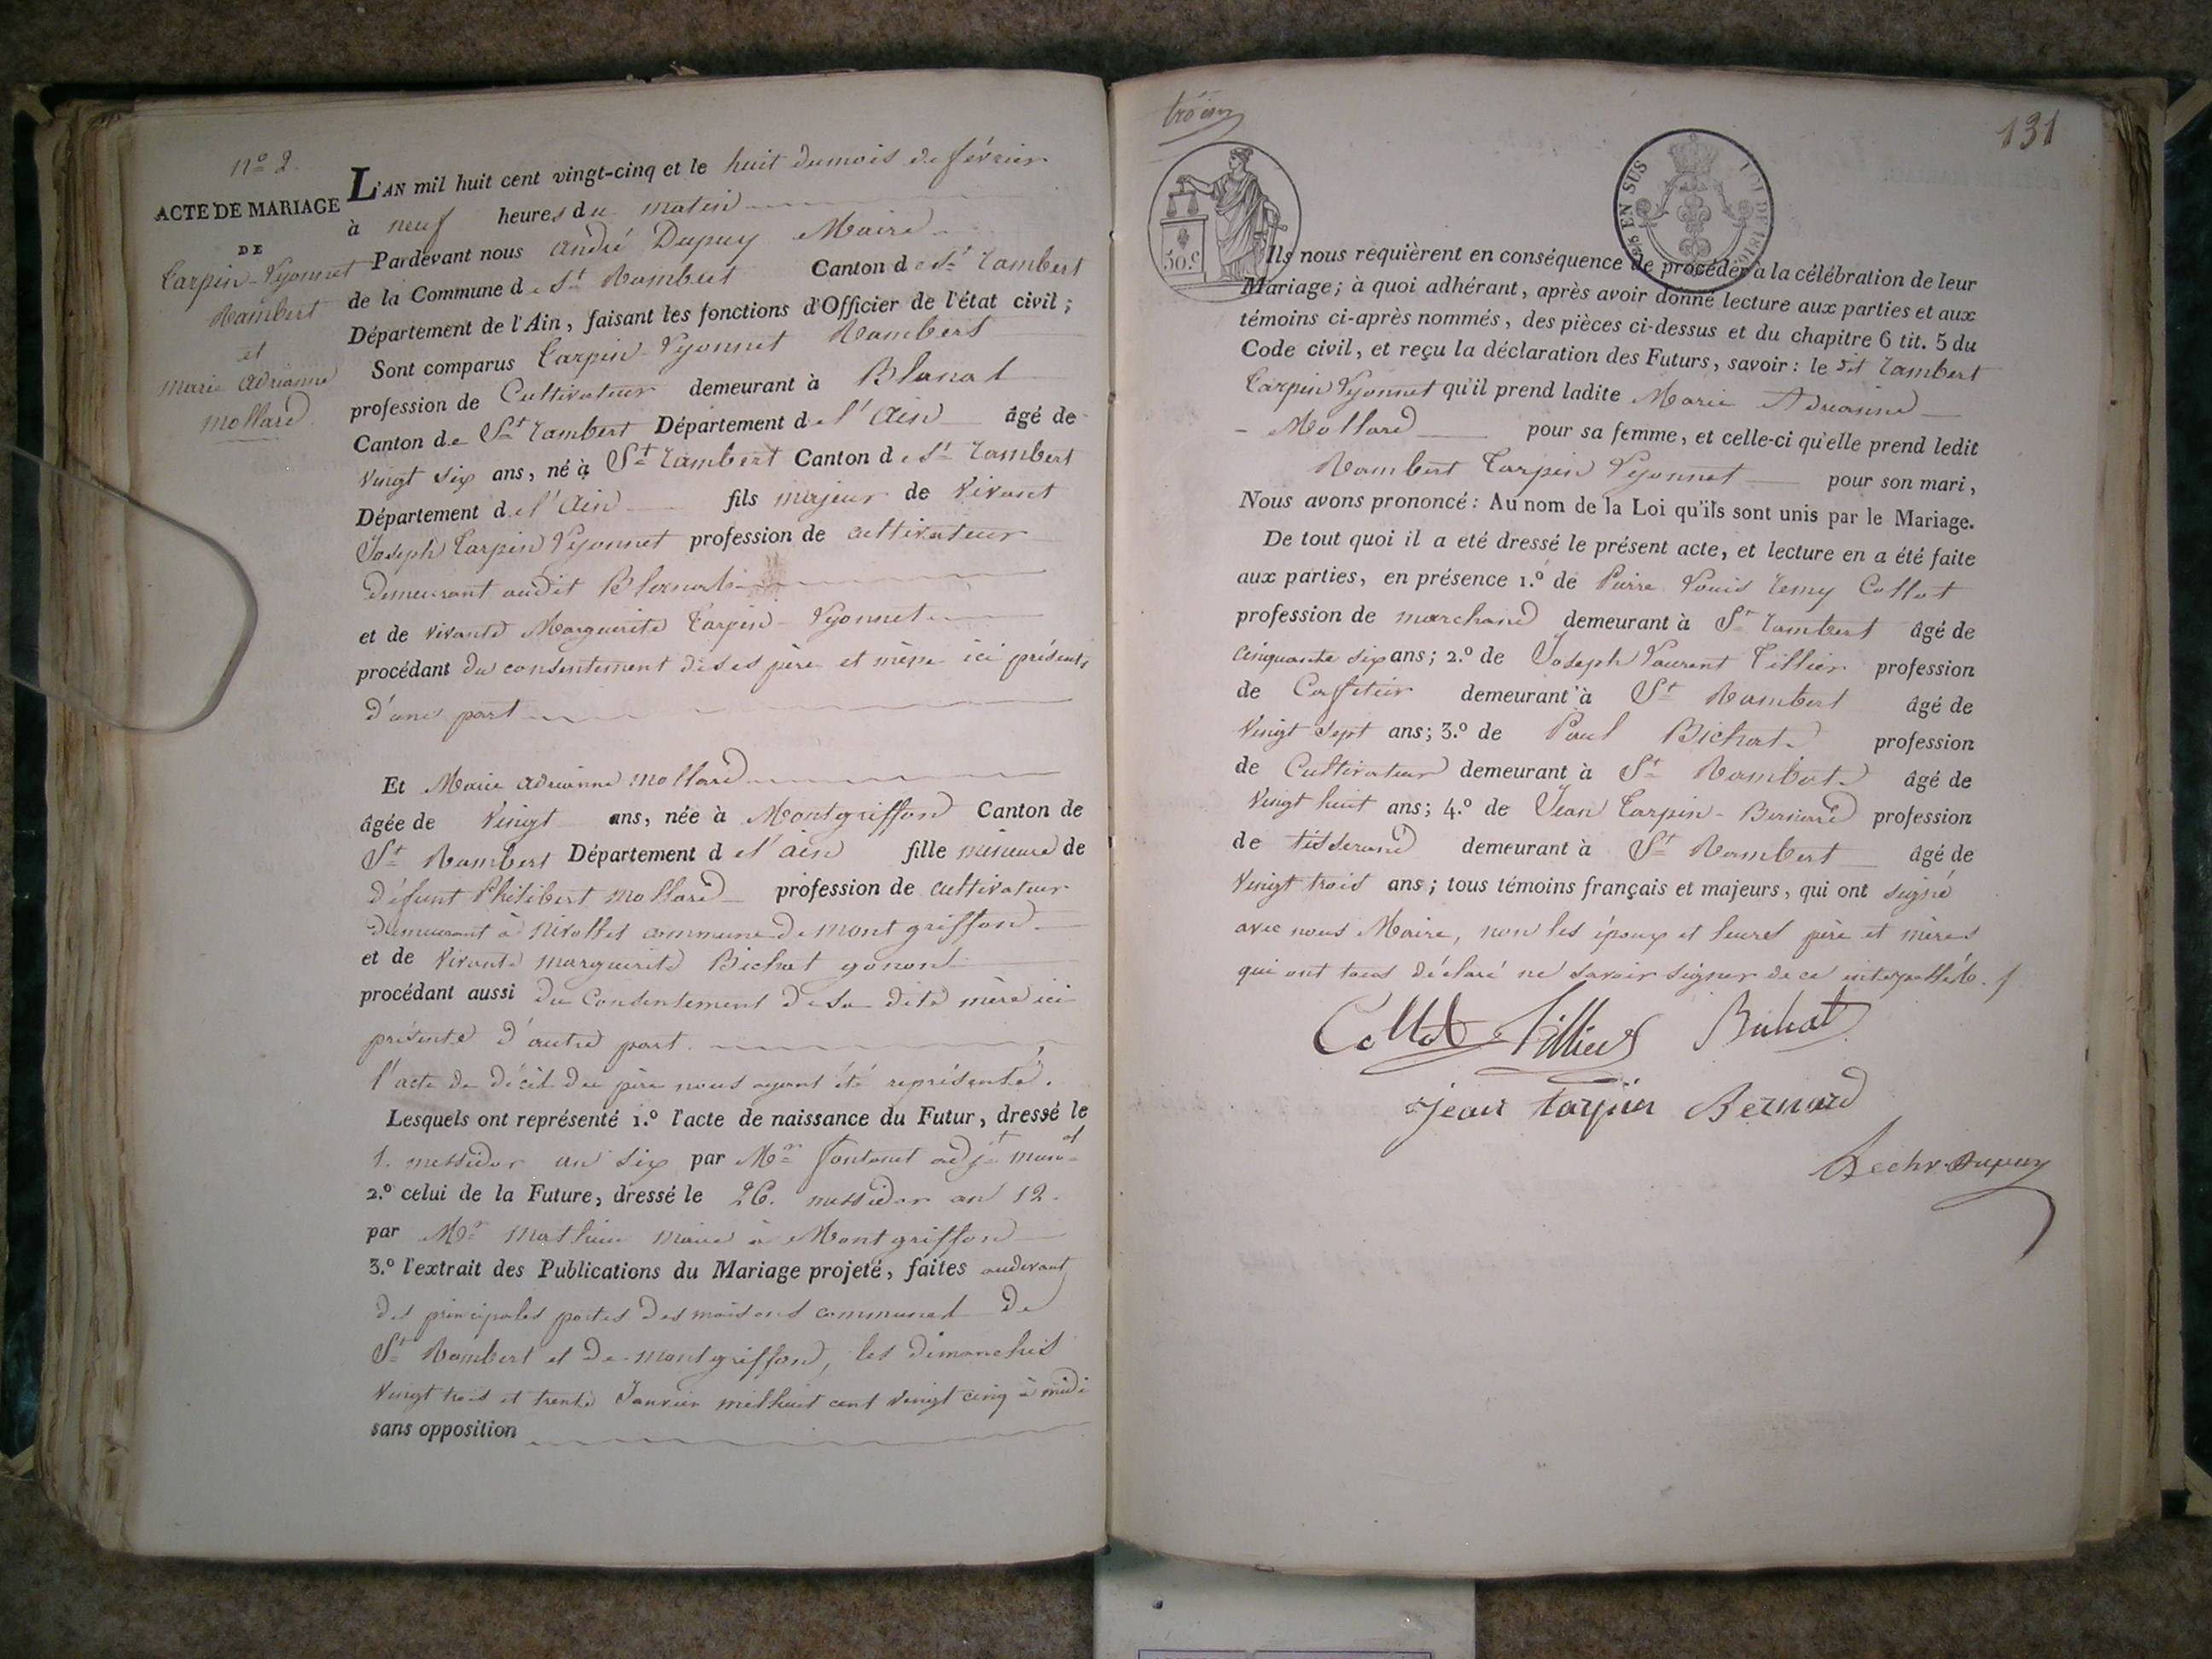 nº 2.
ACTE DE MARIAGE
DE
Carpin-Vyonnet
Rambert
et
marie adrianne
mollard
L'AN mil huit cent vingt-cinq et le huit du mois de février
à neuf heures du matin
Pardevant nous andré Dupuy Maire
de la Commune de St Rambert Canton de St Rambert
Département de l'Ain, faisant les fonctions d'Officier de l'état civil;
Sont comparus Carpin-Vyonnet Rambert
profession de Cultivateur demeurant à Blanat
Canton de St Rambert Département de l'ain âgé de
vingt six ans, né à St Rambert Canton de St Rambert
Département de l'ain fils majeur de vivant
Joseph Carpin Vyonnet profession de cultivateur
demeurant audit Blanat
et de vivante Marguerite Carpin-Vyonnet
procédant du consentement de ses père et mère ici présents
d'une part
Et Marie adrianne mollard
âgée de vingt ans, née à Montgriffon Canton de
St Rambert Département de l'ain fille mineure de
défunt Philibert mollard profession de cultivateur
demeurant à nivollet commune de montgriffon
et de vivante marguerite Bichat gonon
procédant aussi du consentement de sa dite mère ici
présente d'autre part.
l'acte de décès du père nous ayant été représenté.
Lesquels ont représenté 1.º l'acte de naissance du Futur, dressé le
1. messidor an six par Mr fontanet adjt munal
2.º celui de la Future, dressé le 26. messidor an 12
par Mr mathieu maire à Montgriffon
3.º l'extrait des Publications du Mariage projeté, faites audevant
des principales portes des maisons communes de
St Rambert et de montgriffon, les dimanches
vingt trois et trente Janvier mil huit cent vingt cinq à midi
sans opposition
131
50.c
EN SUS
LOI DE 1816
Ils nous requièrent en conséquence de procéder à la célébration de leur
Mariage; à quoi adhérant, après avoir donné lecture aux parties et aux
témoins ci-après nommés, des pièces ci-dessus et du chapitre 6 tit. 5 du
Code civil, et reçu la déclaration des Futurs, savoir: le dit Rambert
Carpin Vyonnet qu'il prend ladite Marie Adrianne
Mollard pour sa femme, et celle-ci qu'elle prend ledit
Rambert Carpin Vyonnet pour son mari,
Nous avons prononcé: Au nom de la Loi qu'ils sont unis par le Mariage.
De tout quoi il a été dressé le présent acte, et lecture en a été faite
aux parties, en présence 1.º de Pierre Louis Remy Collot
profession de marchand demeurant à St Rambert âgé de
cinquante six ans; 2.º de Joseph Laurent Tillier profession
de Caffetier demeurant à St Rambert âgé de
vingt sept ans; 3.º de Paul Bichat profession
de Cultivateur demeurant à St Rambert âgé de
vingt huit ans; 4.º de Jean Carpin-Bernard profession
de tisserand demeurant à St Rambert âgé de
vingt trois ans; tous témoins français et majeurs, qui ont signé
avec nous Maire, non les époux et leurs père et mères
qui ont tous déclaré ne savoir signer de ce interpellés.
Collot Tillier Bichat
jean carpin Bernard
Dupuy